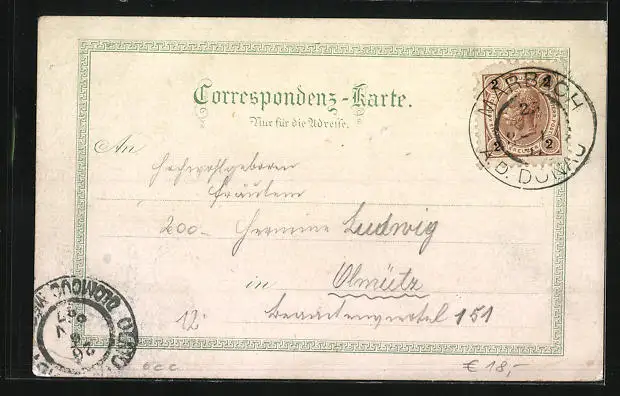 Correspondenz-Karte.
Nur für die Adresse.
2
2 2
MARBACH
A.D. DONAU
An
Hochwohlgeboren
Fräulein
200- Hermine Ludwig
in Olmütz
12. Beamtenviertel 151
OLOMOUC
26
V
97
6cc
€ 18,-